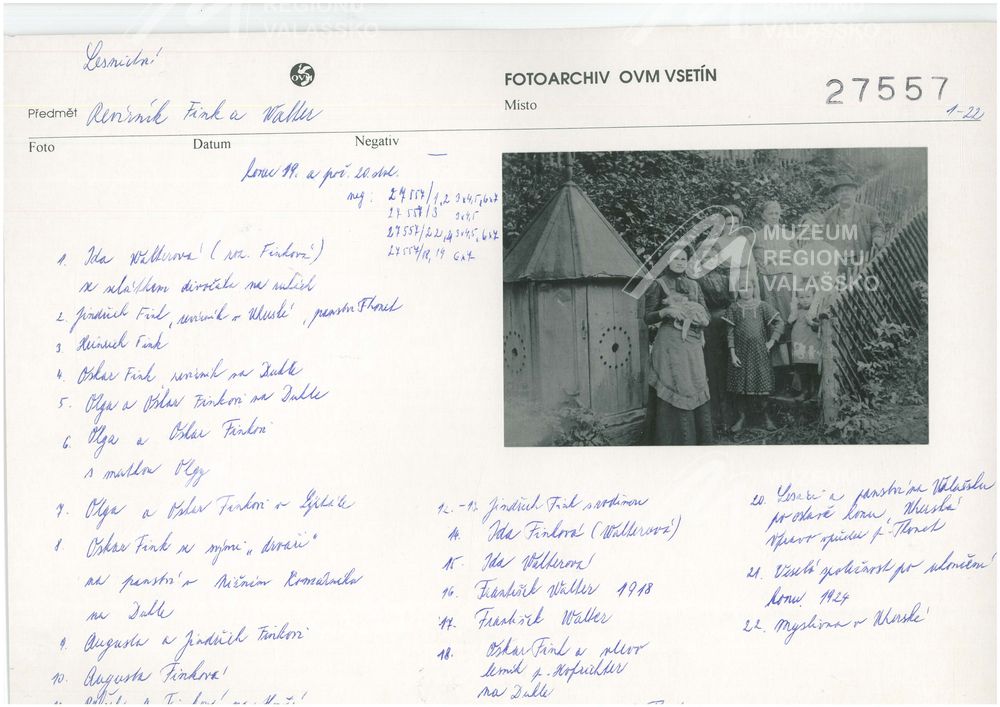 REGIONU
VALAŠSKO
REGIONU
VALAŠSKO
Lesnictví
OVM
FOTOARCHIV OVM VSETÍN
27557
Předmět Revírník Fink a Walter
Místo
1-22
Foto Datum Negativ
konec 19. a poč. 20. stol.
neg: 27557/1,2 3x4,5, 6x7
27557/3 3x4,5
27557/22, 3x4,5, 6x7
27557/18, 19 6x7
1. Ida Walterová (roz. Finková)
divočáka na
2. Jindřich Fink, revírník v Uherské, panství Thonet
3. Heinrich Fink
4. Oskar Fink, revírník na Duble
5. Olga a Oskar Finkovi na Duble
6. Olga a Oskar Finkovi
s matkou Olgy
7. Olga a Oskar Finkovi v
8. Oskar Fink se svými "drvaři"
na panství v Nižním
na Duble
9. Augusta a Jindřich Finkovi
10. Augusta Finková
MUZEUM
REGIONU
VALAŠSKO
12.-13. Jindřich Fink s rodinou
14. Ida Finková (Walterová)
15. Ida Walterová
16. František Walter 1918
17. František Walter
18. Oskar Fink a vlevo
lesník p. Hofrichter
na Duble
20. Lesníci a panstvo na Valašsku
po oslavě honu, Uherská
Vpravo vpředu p. Thonet
21. Veselá společnost po ukončení
honu. 1924
22. Myslivna v Uherské